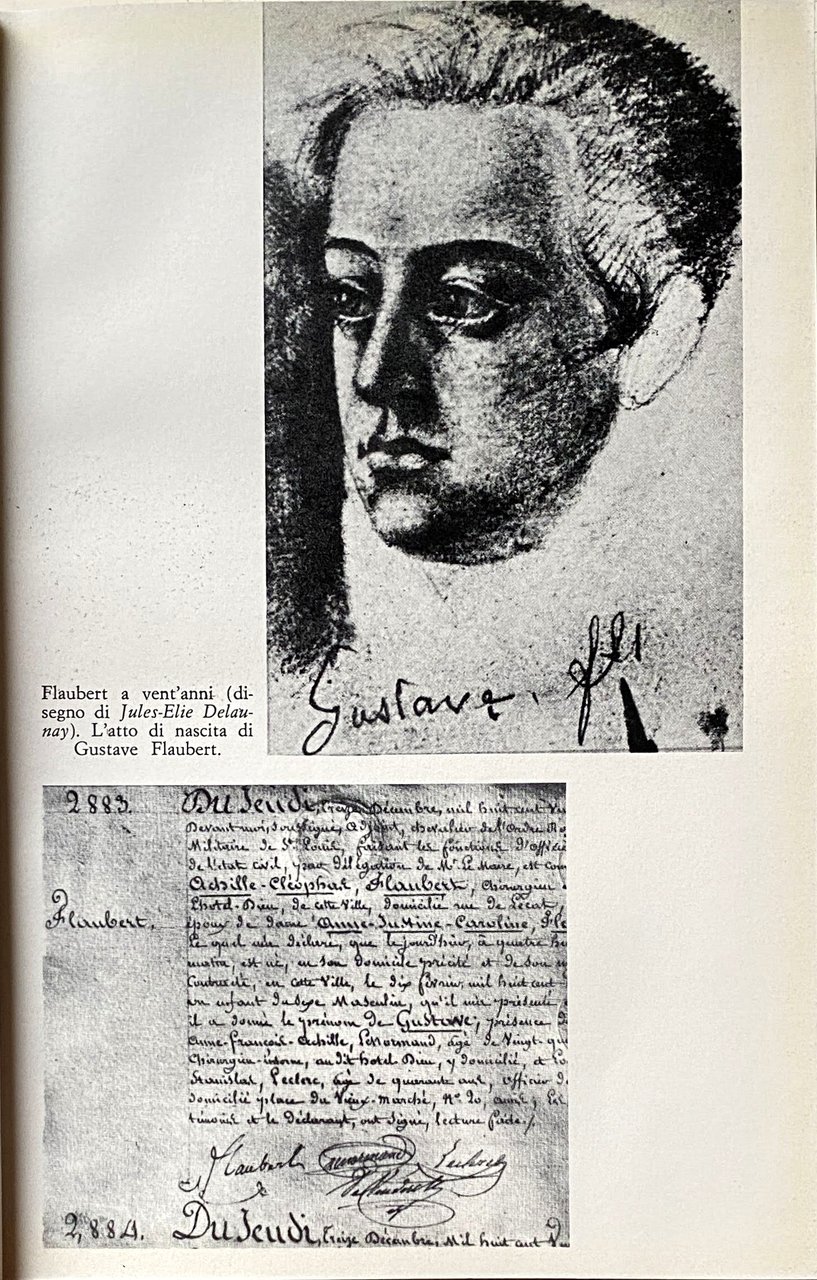 Gustave. fl
Flaubert a vent'anni (di-
segno di Jules-Elie Delau-
nay). L'atto di nascita di
Gustave Flaubert.
2883.
Du Jeudi, treize Décembre, mil huit cent Vin
Devant moi, soussigné, Adjoint, chevalier de l'Ordre Ro
Militaire de St. Louis, faisant les fonctions d'Officie
de l'état civil, par délégation de Mr. Le Maire, est com
Achille-Cléophas, Flaubert, Chirurgien
L'hotel-Dieu, de cette Ville, domicilié rue de Lecat,
Flaubert.
époux de dame Anne-Justine-Caroline, Fle
Le quel m'a déclaré, que le jourd'hui, à quatre he
matin, est né, en son domicile précité et de son m
Contracté, en cette Ville, le dix février, mil huit cent
un enfant du sexe Masculin, qu'il m'a présenté,
il a donné le prénom de Gustave, présence d
Anne-françois-Achille, LeNormand, agé de Vingt-qu
Chirurgien-interne, au dit hotel Dieu, y domicilié, et
Stanislas, Leclerc, agé de quarante ans, officier d
domicilié place du Vieux-marché, No. 20, amis, Les
témoins et le Déclarant, ont signé, lecture faite./.
Flaubert
2,884.
Du Jeudi, treize Décembre, Mil huit cent Vin